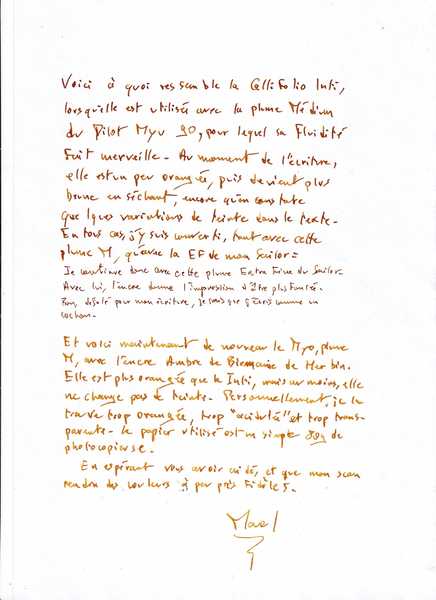 Voici à quoi ressemble la Callifolio Inti,
lorsqu'elle est utilisée avec la plume Médium
du Pilot Myu 90, pour lequel sa Fluidité
Fait merveille - Au moment de l'écriture,
elle est un peu orangée, puis devient plus
brune en séchant, encore qu'on constate
quelques variations de teinte dans le texte -
En tous cas, j'y suis converti, tant avec cette
plume M, qu'avec la EF de mon Sailor =
Je continue donc avec cette plume Extra Fine du Sailor -
Avec lui, l'encre donne l'impression d'être plus foncée.
Bon, désolé pour mon écriture, je sais que j'écris comme un
cochon -
Et voici maintenant de nouveau le Myo, plume
M, avec l'encre Ambre de Birmanie de Herbin.
Elle est plus orangée que le Inti, mais au moins, elle
ne change pas de teinte - Personnellement, je la
trouve trop orangée, trop "acidulé" et trop trans-
parente - le papier utilisé est un simple 80g de
photocopieuse -
En espérant vous avoir aidé, et que mon scan
rendra des couleurs à peu près Fidèles.